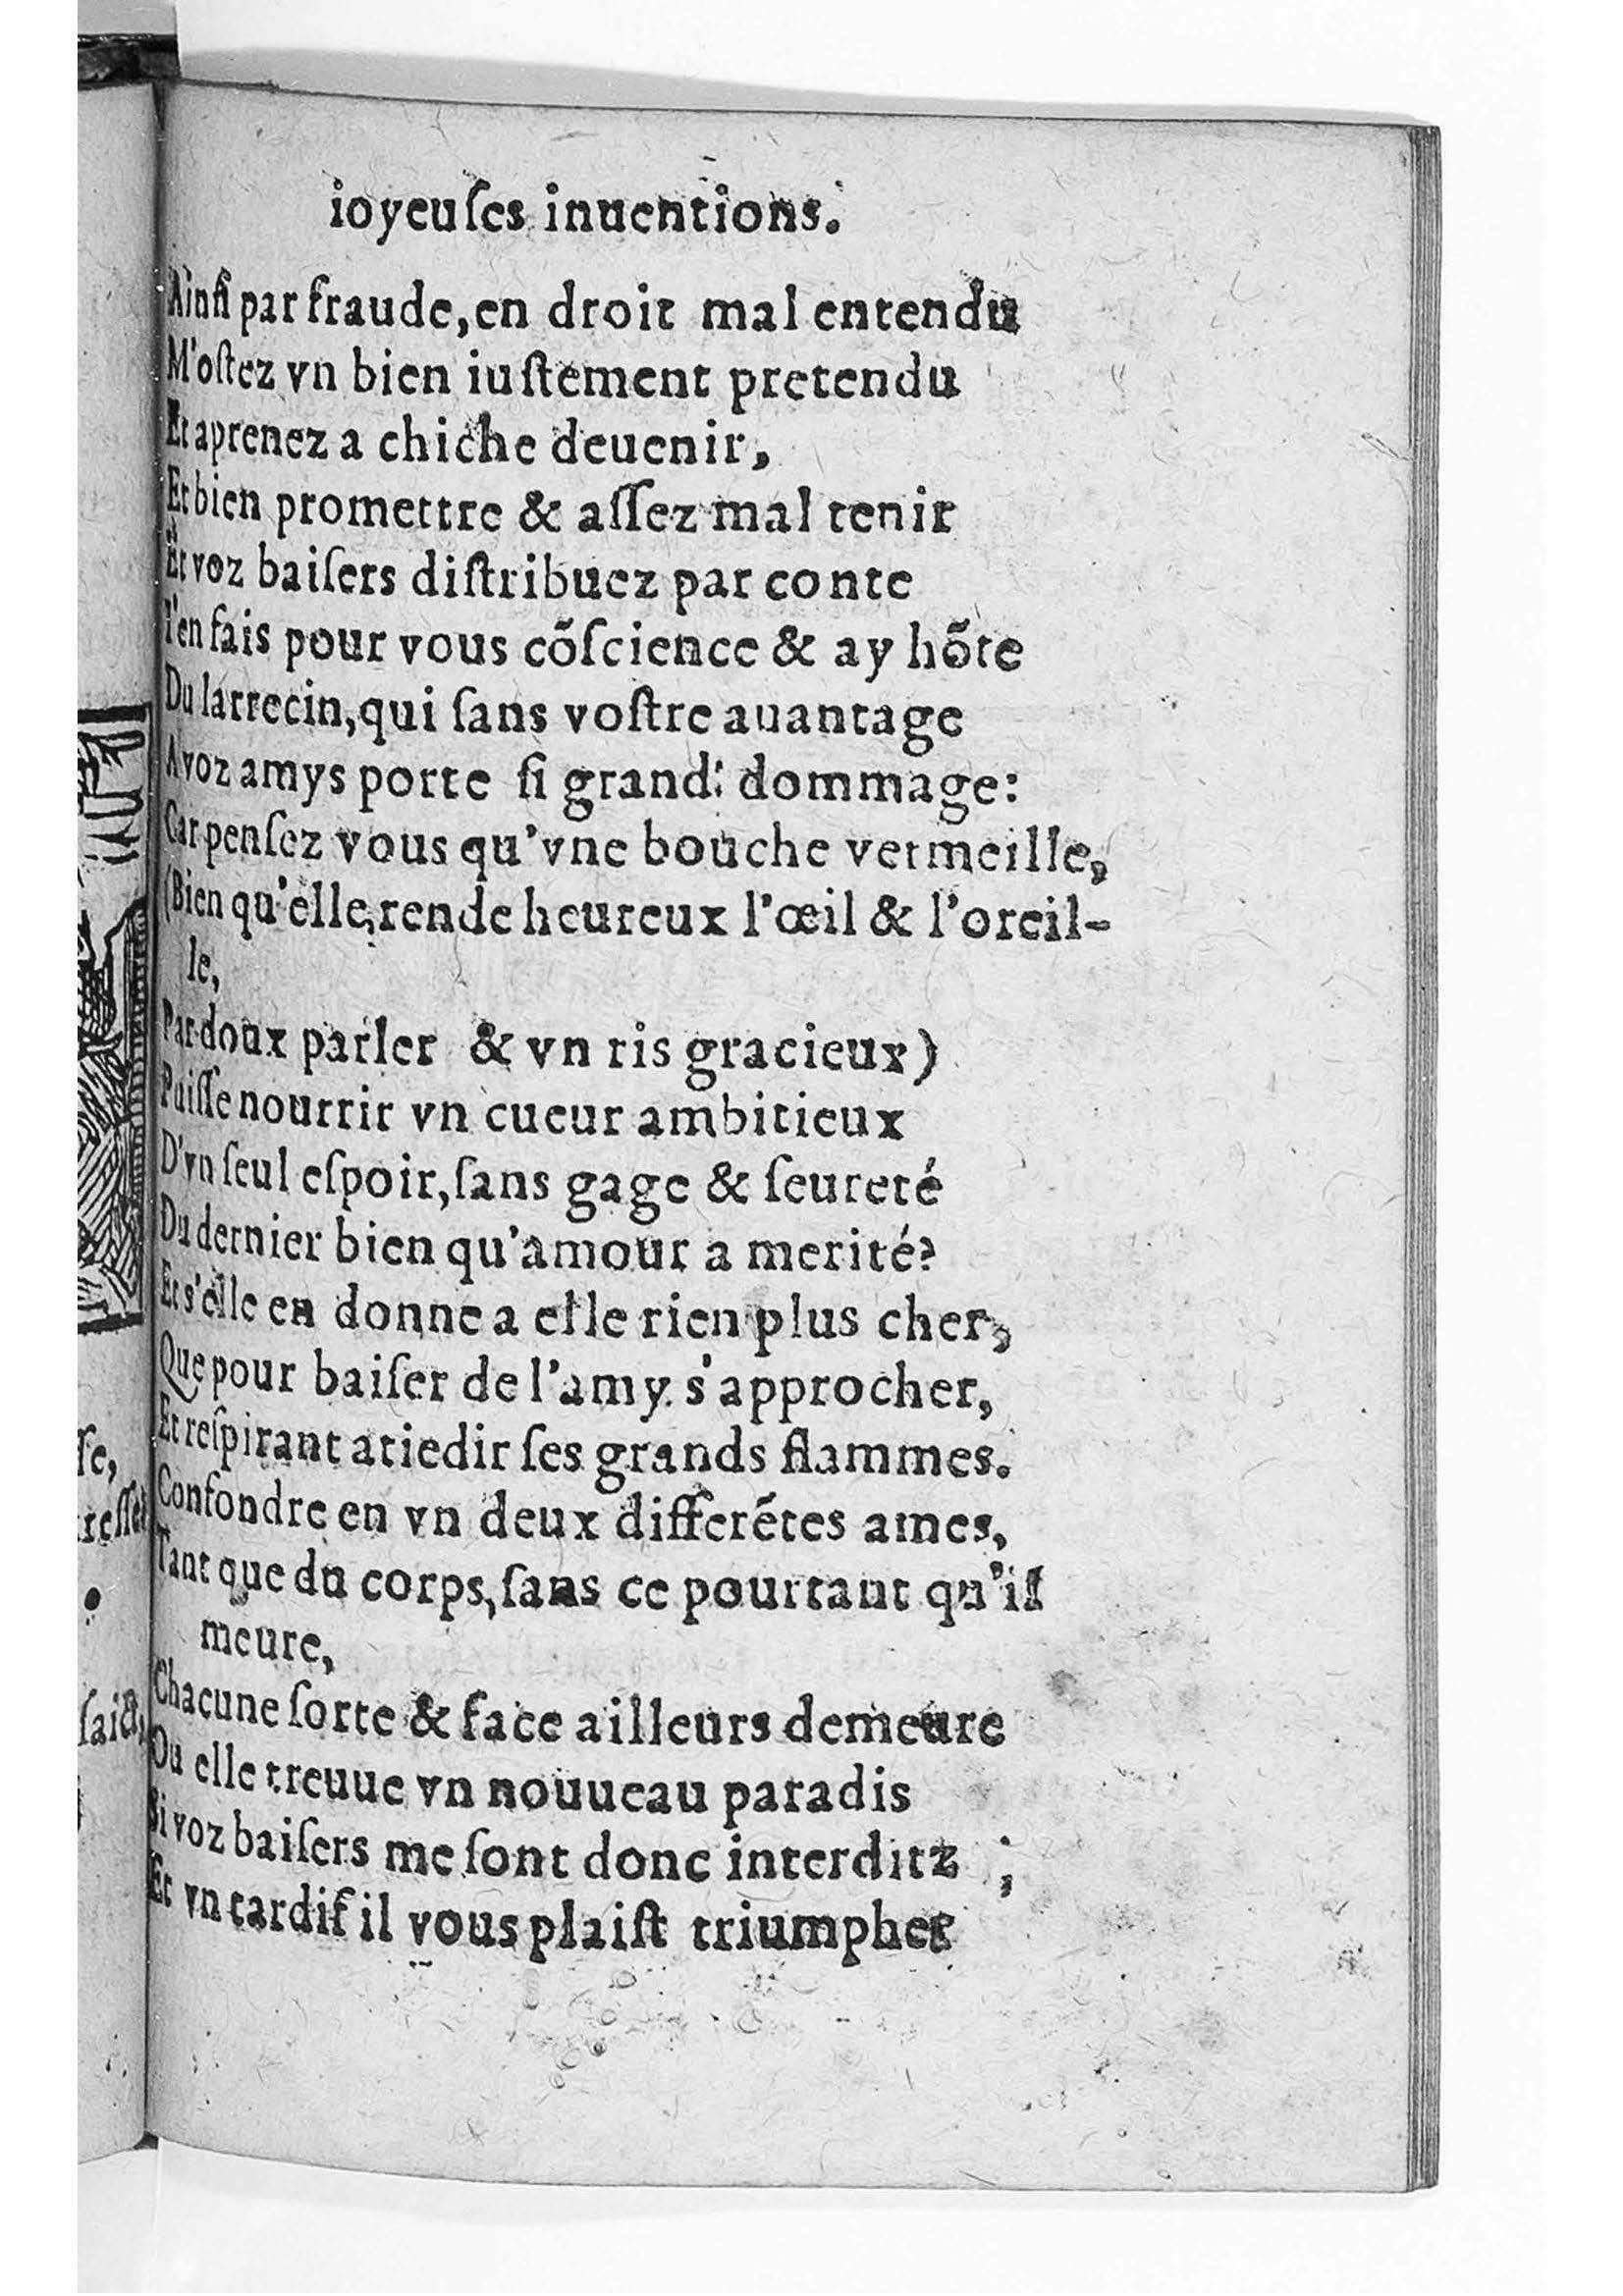 ioyeuſes inuentions.
Ainſi par fraude, en droit mal entendu
M'oſtez vn bien iuſtement pretendu
Et aprenez a chiche deuenir,
Et bien promettre & aſſez mal tenir
Et voz baiſers diſtribuez par conte
I'en fais pour vous cõſcience & ay hõte
Du larrecin, qui ſans voſtre auantage
A voz amys porte ſi grand' dommage:
Car penſez vous qu'vne bouche vermeille,
(Bien qu'elle, rende heureux l'œil & l'oreil-
le,
Par doux parler & vn ris gracieux)
Puiſſe nourrir vn cueur ambitieux
D'vn ſeul eſpoir, ſans gage & ſeureté
Du dernier bien qu'amour a merité?
Et s'elle en donne a elle rien plus cher,
Que pour baiſer de l'amy s'approcher,
Et reſpirant atiedir ſes grands flammes.
Confondre en vn deux differẽtes ames,
Tant que du corps, ſans ce pourtant qu'il
meure,
Chacune ſorte & face ailleurs demeure
Ou elle treuue vn nouueau paradis
Si voz baiſers me ſont donc interditz ;
Et vn tardif il vous plaiſt triumpher
ſe,
ſaict,